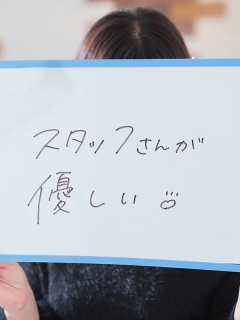 スタッフさんが
優しい